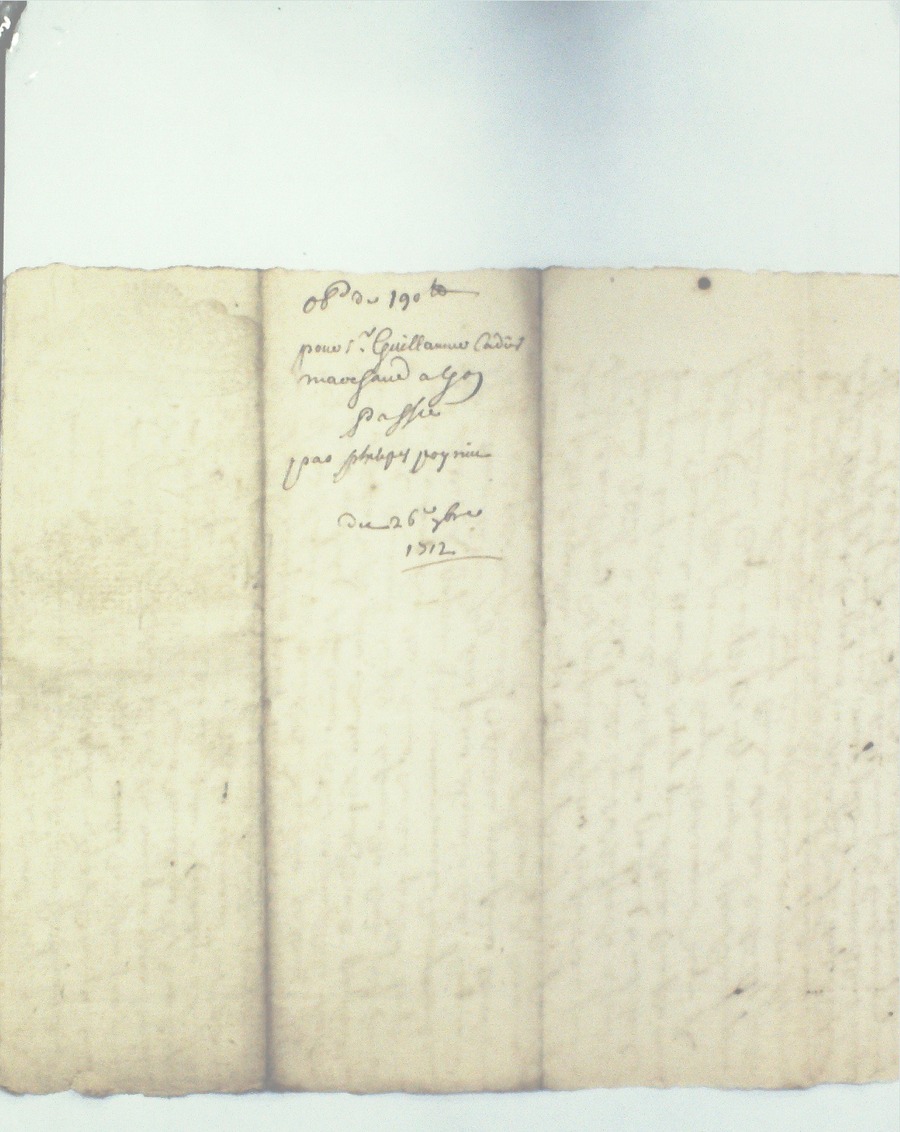 obon de 190 tt
pour sr. Guillaume Cadis
marchand a Lyon
Passée
par phelipes poynie
du 26e 7bre
1712